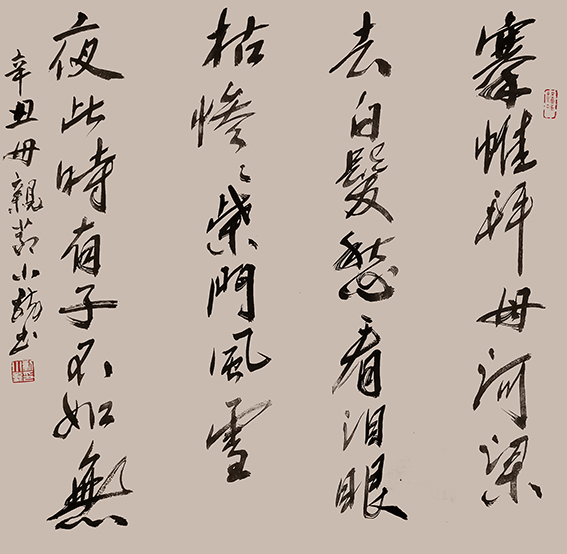 搴帷拜母河梁
去白髮愁看泪眼
枯惨〻柴門風雪
夜此時有子不如無
辛丑母親節小书